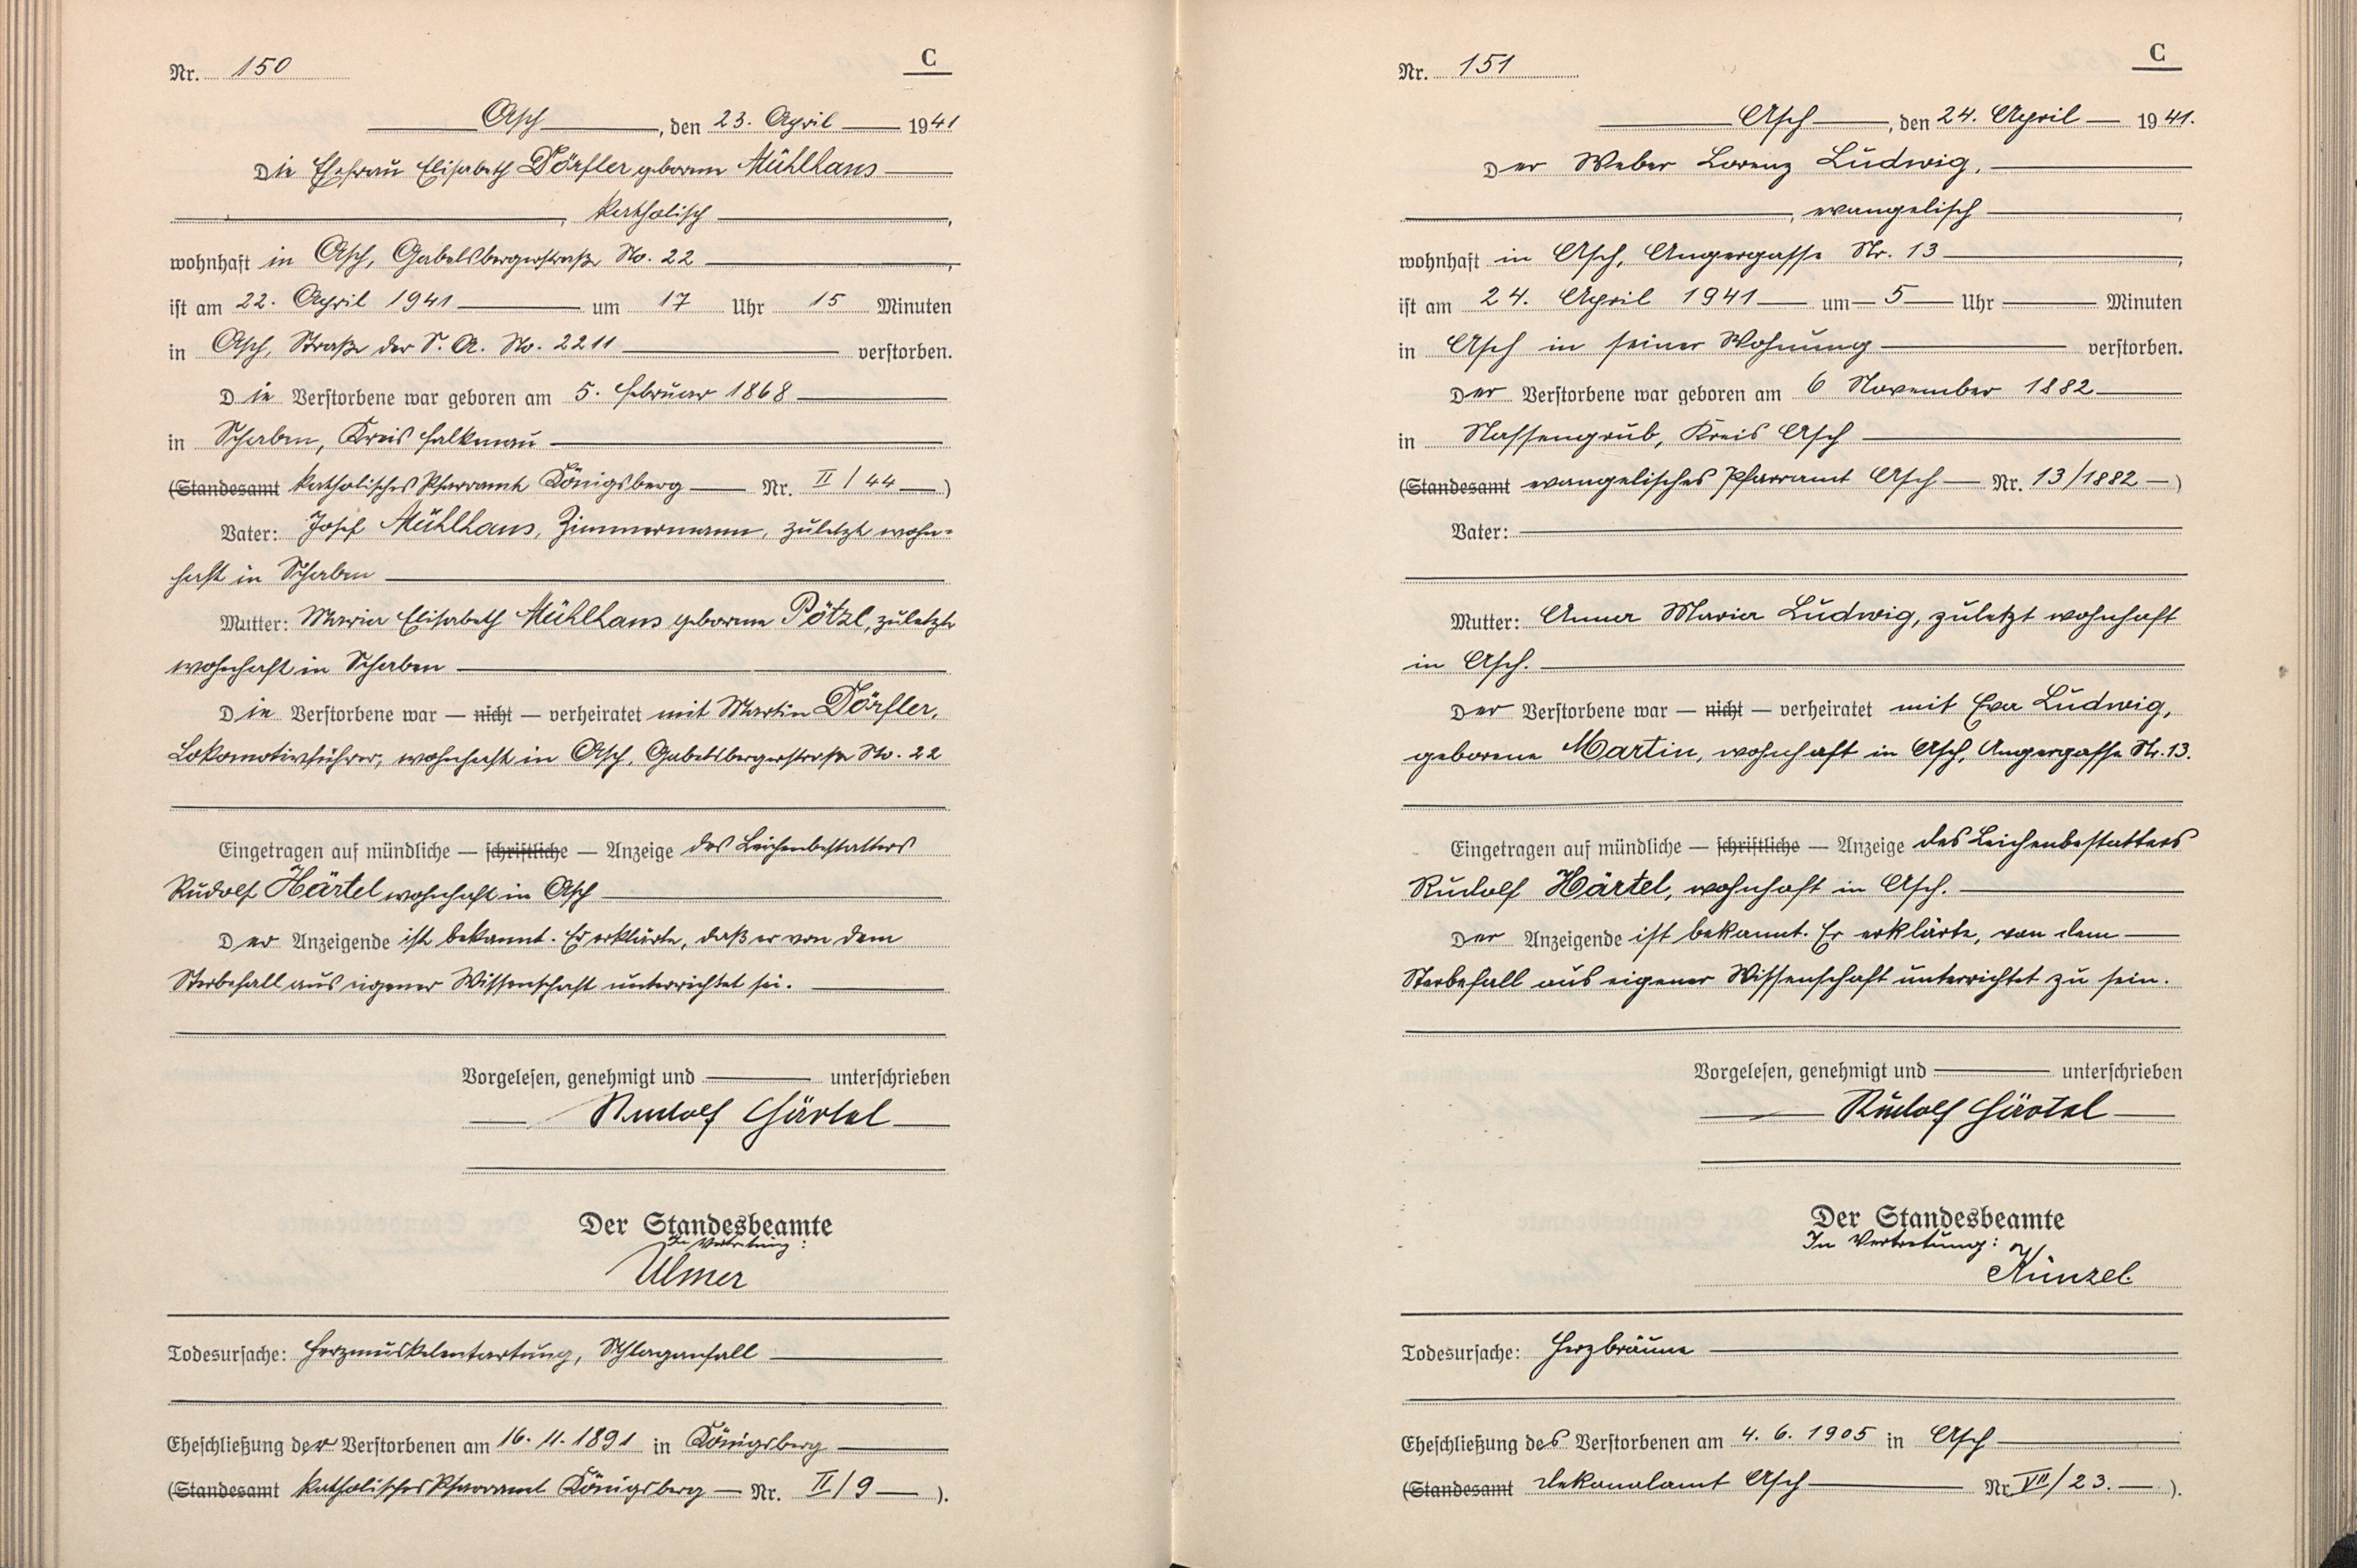 Nr. 150
C
Asch, den 23. April 1941
Die Ehefrau Elisabeth Dörfler geborene Mühlhans
, katholisch,
wohnhaft in Asch, Gabelsbergerstraße No. 22,
ist am 22. April 1941 um 17 Uhr 15 Minuten
in Asch, Straße der S. A. No. 2211 verstorben.
Die Verstorbene war geboren am 5. Februar 1868
in Schaben, Kreis Falkenau
(Standesamt katholisches Pfarramt Königsberg Nr. II/44)
Vater: Josef Mühlhans, Zimmermann, zuletzt wohn-
haft in Schaben
Mutter: Maria Elisabeth Mühlhans geborene Pötzl, zuletzt
wohnhaft in Schaben
Die Verstorbene war — nicht — verheiratet mit Martin Dörfler,
Lokomotivführer, wohnhaft in Asch, Gabelsbergerstraße No. 22
Eingetragen auf mündliche — schriftliche — Anzeige des Leichenbestatters
Rudolf Härtel wohnhaft in Asch
Der Anzeigende ist bekannt. Er erklärte, daß er von dem
Sterbefall aus eigener Wissenschaft unterrichtet sei.
Vorgelesen, genehmigt und unterschrieben
Rudolf Härtel
Der Standesbeamte
In Vertretung:
Ulmer
Todesursache: Herzmuskelentartung, Schlaganfall
Eheschließung der Verstorbenen am 16. 11. 1891 in Königsberg
(Standesamt katholisches Pfarramt Königsberg Nr. II/9).
Nr. 151
C
Asch, den 24. April 1941.
Der Weber Lorenz Ludwig,
, evangelisch,
wohnhaft in Asch, Angergasse Nr. 13,
ist am 24. April 1941 um 5 Uhr Minuten
in Asch in seiner Wohnung verstorben.
Der Verstorbene war geboren am 6 November 1882
in Nassengrub, Kreis Asch
(Standesamt evangelisches Pfarramt Asch Nr. 13/1882)
Vater:
Mutter: Anna Maria Ludwig, zuletzt wohnhaft
in Asch.
Der Verstorbene war — nicht — verheiratet mit Eva Ludwig,
geborene Martin, wohnhaft in Asch, Angergasse Nr. 13.
Eingetragen auf mündliche — schriftliche — Anzeige des Leichenbestatters
Rudolf Härtel, wohnhaft in Asch.
Der Anzeigende ist bekannt. Er erklärte, von dem
Sterbefall aus eigener Wissenschaft unterrichtet zu sein.
Vorgelesen, genehmigt und unterschrieben
Rudolf Härtel
Der Standesbeamte
In Vertretung:
Künzel
Todesursache: Herzbräune
Eheschließung des Verstorbenen am 4. 6. 1905 in Asch
(Standesamt Dekanalamt Asch Nr. VII/23.).